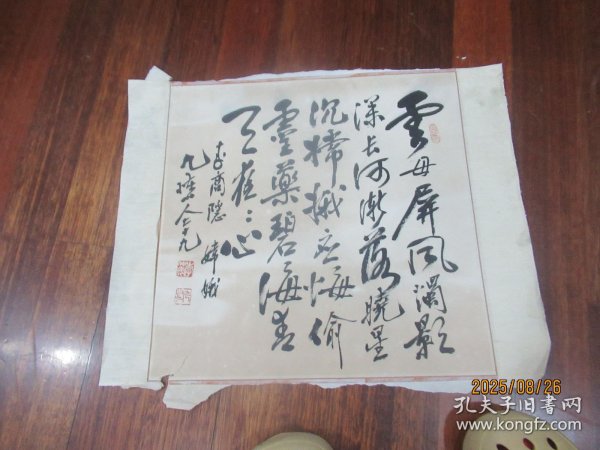 雲母屏风燭影
深长河渐落曉星
沉嫦娥应悔偷
靈藥碧海青
天夜々心
李商隐 嫦娥
2025/08/26
孔夫子旧書网
www.kongfz.com